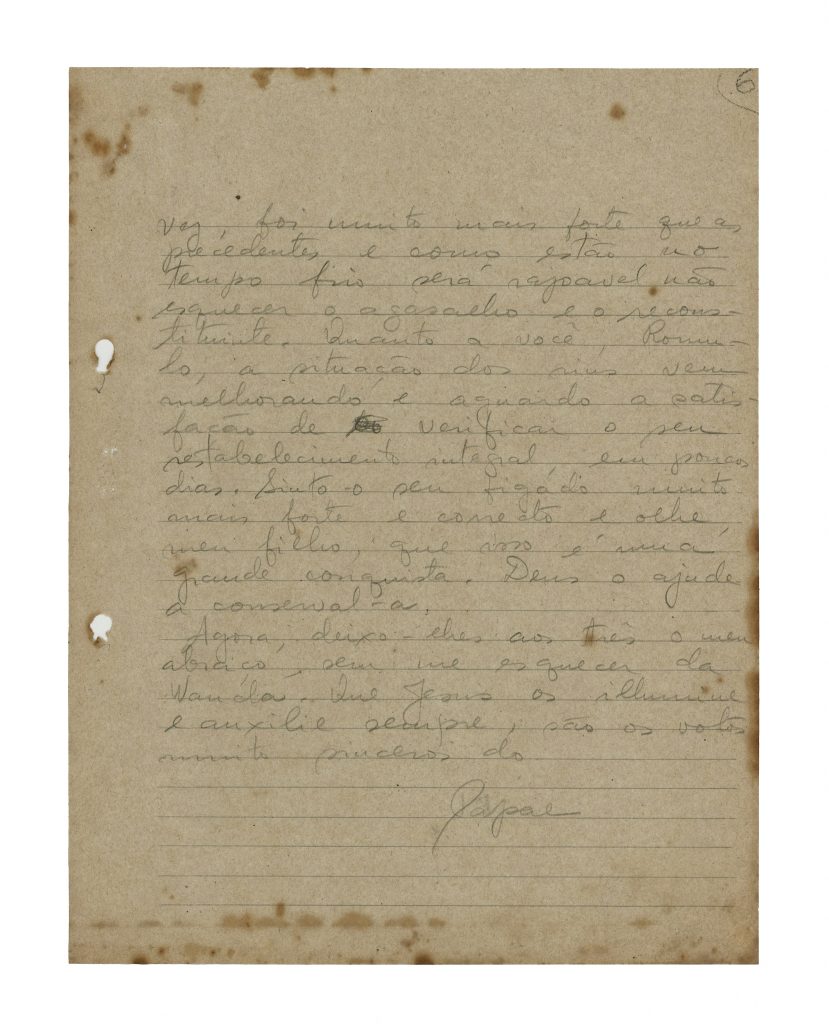 6
vez, foi muito mais forte que as
precedentes e como estão no
tempo frio será rasoavel não
esquecer o agasalho e o recons-
tituinte. Quanto a você, Romu-
lo, a situação dos rins vem
melhorando e aguardo a satis-
fação de verificar o seu
restabelecimento integral, em poucos
dias. Sinto-o seu figado muito
mais forte e correcto e olhe,
meu filho, que isso é uma
grande conquista. Deus o ajude
a conserval-a.
Agora, deixo-lhes aos três o meu
abraço, sem me esquecer da
Wanda. Que Jesus os illumine
e auxilie sempre, são os votos
muito sinceros do
Papae